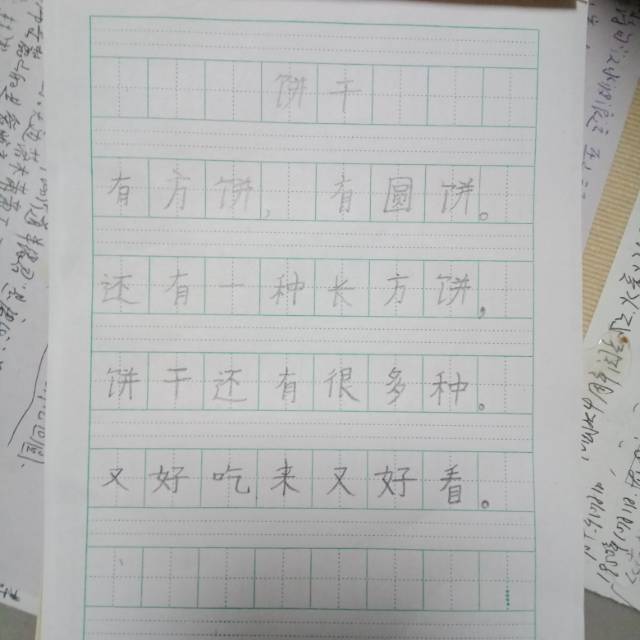 饼干
有方饼，有圆饼。
还有一种长方饼。
饼干还有很多种。
又好吃来又好看。